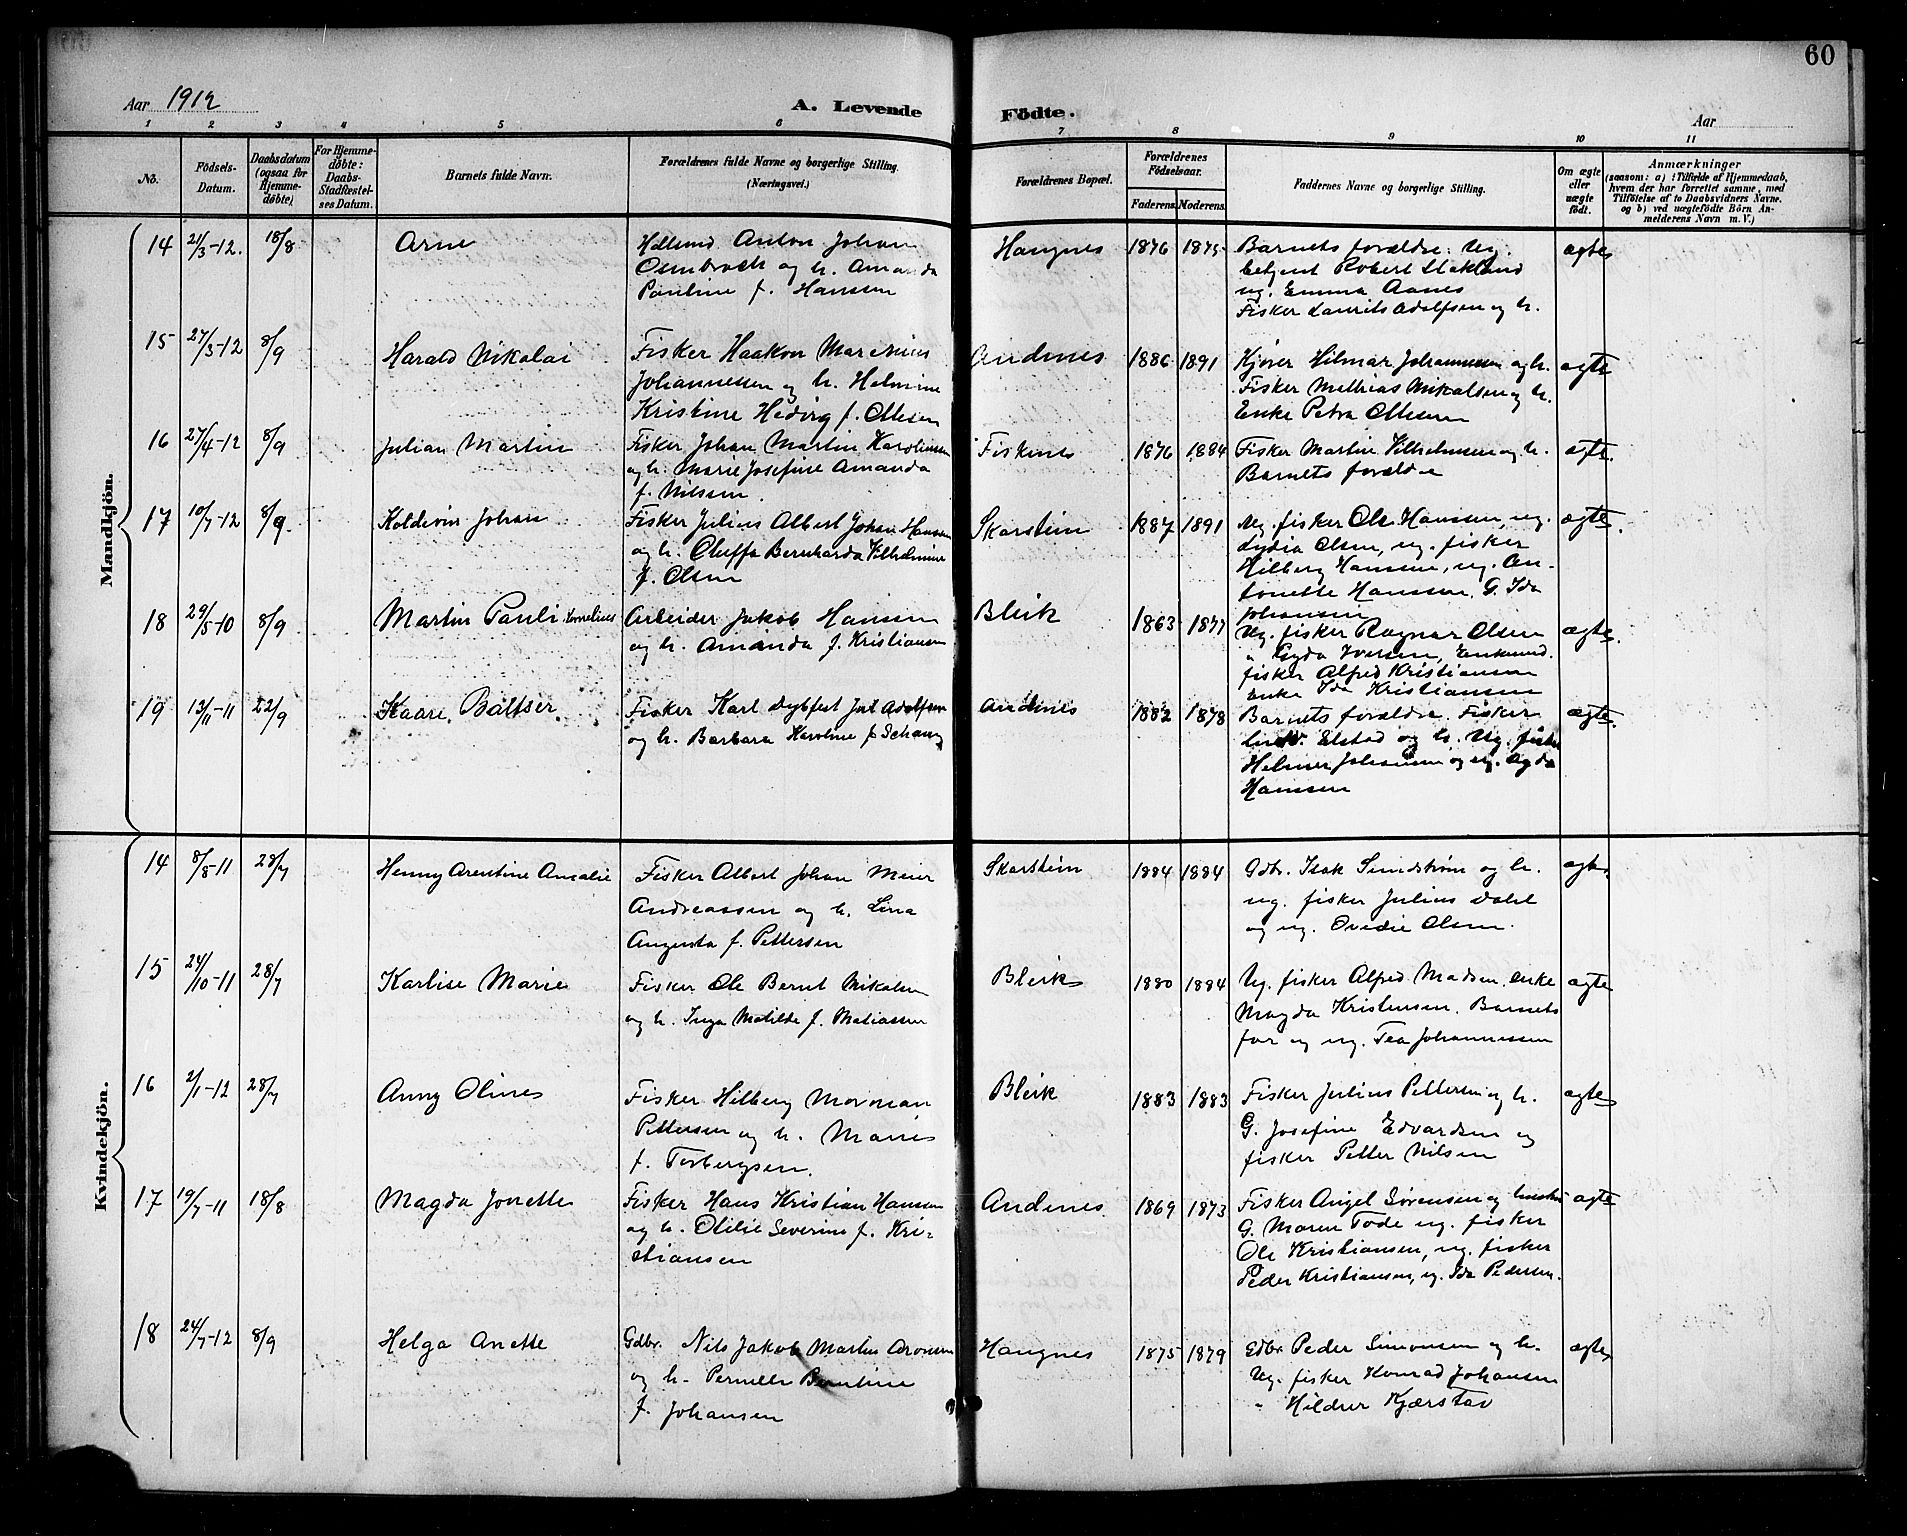 60
Aar 1912
A. Levende Födte.
Aar
1 2 3 4 5 6 7 8 9 10 11
No.
Födsels-Datum.
Daabsdatum (ogsaa for Hjemmedøbte)
For Hjemmedøbte: Daabs-Stadfæstelses Datum.
Barnets fulde Navn.
Forældrenes fulde Navne og borgerlige Stilling.
(Næringsvei.)
Forældrenes Bopæl.
Forældrenes Födselsaar.
Faderens. Moderens.
Faddernes Navne og borgerlige Stilling.
Om ægte eller uægte födt.
Anmærkninger
(saasom: a) i Tilfælde af Hjemmedaab, hvem der har forrettet samme, med Tilföielse af to Daabsvidners Navne. og b) ved uægtefödte Börn Anmelderens Navn m. V.)
Mandkjön.
14 21/3-12. 18/8 Arne
Anton Johan
og h. Amanda
Pauline f. Hanssen
Haugnes 1876 1875
Barnets forældre. Ug.
betjent Robert
ug. Emma Aanes
Fisker Laurits Adolfsen og h.
ægte
15 27/3-12 8/9 Harald Nikolai
Fisker Haakon Marenius
Johannessen og h. Helmine
Kristine Hedvig f. Ottesen
Andenes 1886 1891
Hilmar Johannessen og h.
Fisker Mathias Mikalsen og h.
Enke Petra Ottesen
ægte
16 27/4-12 8/9 Julian Martin
Fisker Johan Martin Karoliussen
og h. Marie Josefine Amanda
f. Nilsen.
Fiskenes 1876 1884
Fisker Martin Vilhelmsen og h.
Barnets forældre
ægte.
17 10/7-12 8/9 Koldevin Johan
Fisker Julius Albert Johan Hanssen
og h. Oluffa Bernharda Vilhelmine
f. Olsen
Skarstein 1887 1891
Ug. fisker Ole Hanssen, ug.
Lydia Olsen, ug. fisker
Hilberg Hanssen, ug. An-
tonette Hanssen, G. Ida
Johansen
ægte.
18 29/5-10 8/9 Martin Pauli Kornelius
Arbeider Jakob Hanssen
og h. Amanda f. Kristiansen
Bleik 1863 1877
Ug. fisker Ragnar Olsen
" Gyda Iversen, Enkemand
fisker Alfred Kristiansen
Enke Ida Kristiansen
ægte.
19 13/11-11 22/9 Kaare Baltser
Fisker Karl Dybfest Juel Adolfsen
og h. Barbara Karoline f. Schanz
Andenes 1882 1878
Barnets forældre. Fisker
Elstad og h. Ug. fisker
Helmer Johansen og ug. Agda
Hanssen
ægte.
Kvindekjön.
14 8/8-11 28/7 Henny Arentine Amalie
Fisker Albert Johan Meier
Andreassen og h. Lina
Augusta f. Pettersen
Skarstein 1884 1884
Gdbr. Isak Sundstrøm og h.
ug. fisker Julius Dahl
og ug. Ovedie Olsen.
ægte.
15 24/10-11 28/7 Karlise Marie
Fisker Ole Bernt Mikalsen
og h. Inga Matilde f. Matiassen
Bleik 1880 1884
Ug. fisker Alfred Madsen, enke
Magda Kristensen. Barnets
far og ug. Tea Johannessen
ægte
16 2/1-12 28/7 Anny Oline
Fisker Hilberg Norman
Pettersen og h. Marie
f. Torbergsen.
Bleik 1883 1883
Fisker Julius Pettersen og h.
G. Josefine Edvardsen og
fisker Petter Nilsen
ægte
17 19/7-11 18/8 Magda Jonette
Fisker Hans Kristian Hanssen
og h. Otilie Severine f. Kri-
stiansen
Andenes 1869 1873
Fisker Angel Sørensen og hustru
G. Maren Tode ug. fisker
Ole Kristiansen, ug. fisker
Peder Kristiansen, ug. Ida Pedersen.
ægte
18 24/7-12 8/9 Helga Anette
Gdbr. Nils Jakob Martin Aronsen
og h. Pernelle Berntine
f. Johansen
Haugnes 1875 1879
Gdbr Peder Simonsen og h.
Ug. fisker Konrad Johansen
" Hildur Kjærstad
ægte